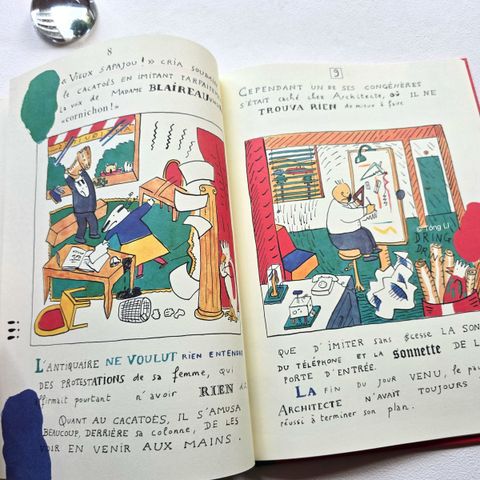 8
« VIEUX SAPAJOU ! » CRIA SOUDAIN
le CACATOËS EN IMITANT PARFAITEMENT
LA VOIX DE MADAME BLAIREAU
« cornichon ! »
L'ANTIQUAIRE NE VOULUT RIEN ENTENDRE
DES PROTESTATIONS de sa femme, qui
affirmait pourtant n'avoir RIEN
QUANT AU CACATOËS, IL S'AMUSA
BEAUCOUP, DERRIÈRE SA COLONNE, DE LES
VOIR EN VENIR AUX MAINS.
9
CEPENDANT UN DE SES CONGÉNÈRES
S'ÉTAIT CACHÉ chez ARCHITECTE, OÙ IL NE
TROUVA RIEN de mieux à faire
© Tong Li
DRING
QUE D'IMITER SANS CESSE LA
DU TÉLÉPHONE ET LA sonnette DE LA
PORTE D'ENTRÉE.
LA FIN DU JOUR VENU, le
ARCHITECTE N'AVAIT TOUJOURS
réussi à terminer son plan.